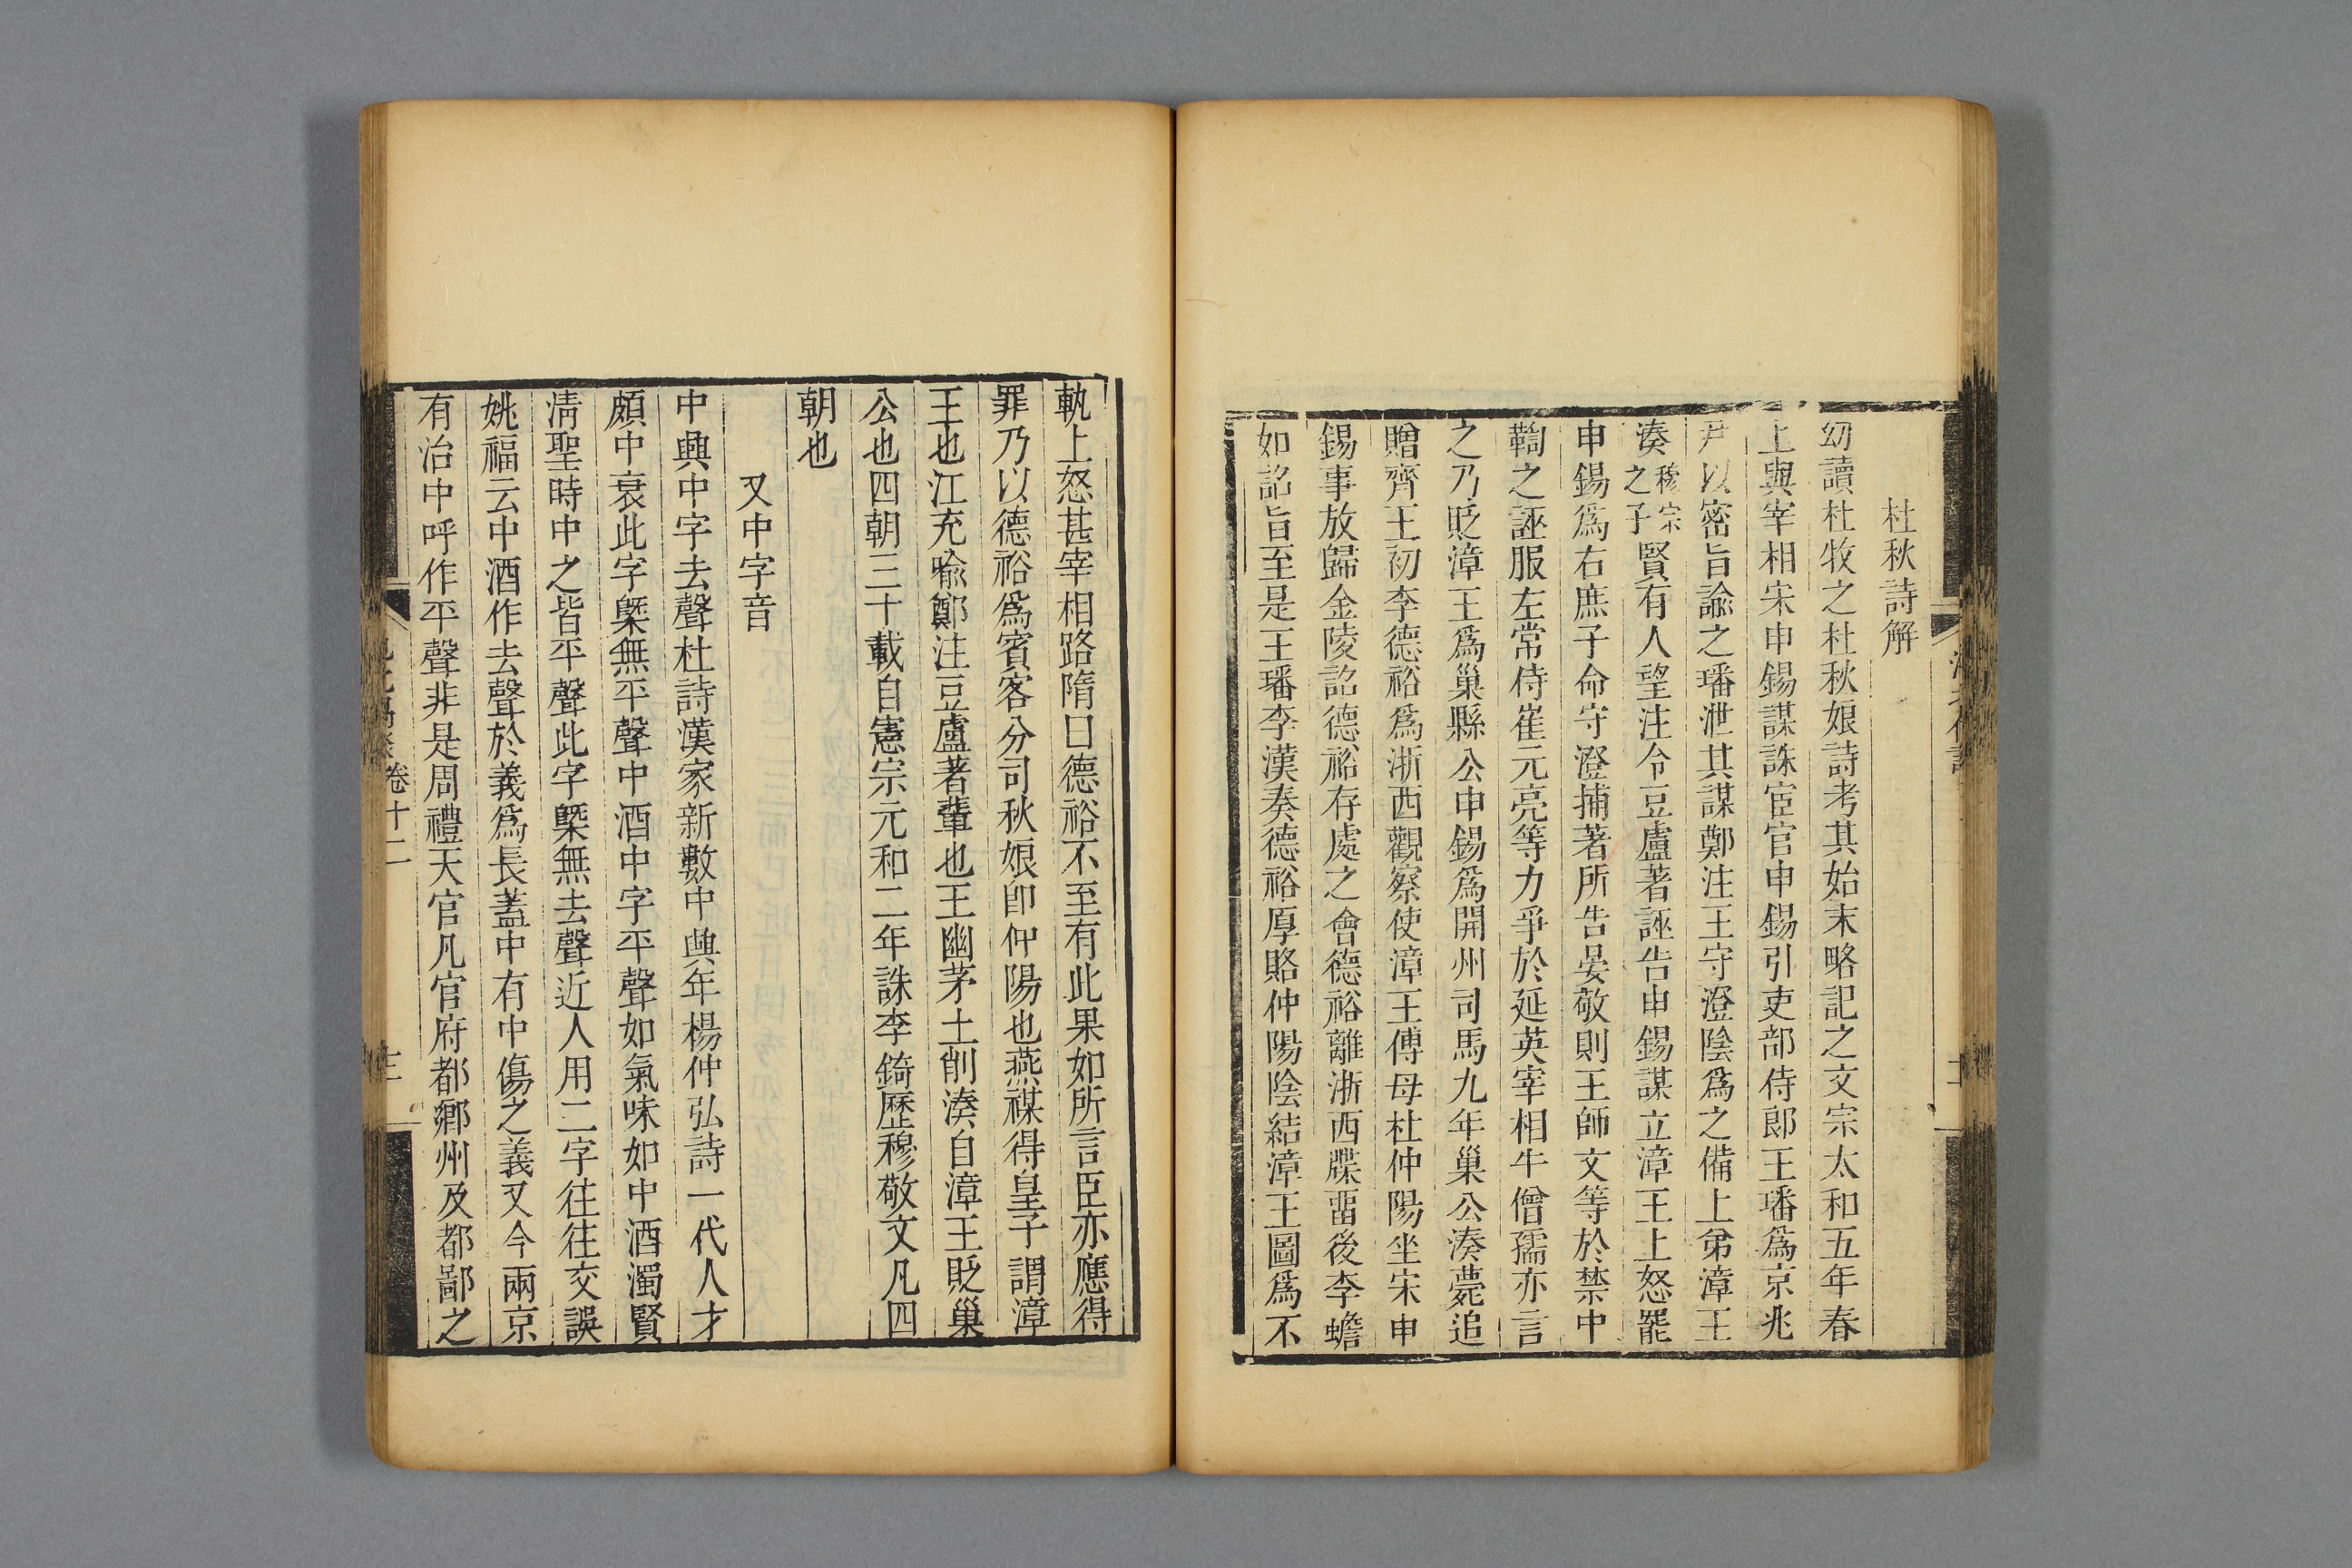 杜秋詩解
幼讀杜牧之杜秋娘詩考其始末略記之文宗太和五年春
上與宰相宋申錫謀誅宦官申錫引吏部侍郎王璠爲京兆
尹以密旨諭之璠泄其謀鄭注王守澄陰爲之備上弟漳王
湊穆宗之子賢有人望注令豆盧著誣告申錫謀立漳王上怒罷
申錫爲右庶子命守澄捕著所告晏敬則王師文等於禁中
鞫之誣服左常侍崔元亮等力爭於延英宰相牛僧孺亦言
之乃貶漳王爲巢縣公申錫爲開州司馬九年巢公湊薨追
贈齊王初李德裕爲浙西觀察使漳王傅母杜仲陽坐宋申
錫事放歸金陵詔德裕存處之會德裕離浙西牒畱後李蟾
如詔旨至是王璠李漢奏德裕厚賂仲陽陰結漳王圖爲不
軌上怒甚宰相路隋曰德裕不至有此果如所言臣亦應得
罪乃以德裕爲賓客分司秋娘卽仲陽也燕禖得皇子謂漳
王也江充喩鄭注豆盧著輩也王幽茅土削湊自漳王貶巢
公也四朝三十載自憲宗元和二年誅李錡歷穆敬文凡四
朝也
又中字音
中興中字去聲杜詩漢家新數中興年楊仲弘詩一代人才
頗中衰此字槩無平聲中酒中字平聲如氣味如中酒濁賢
淸聖時中之皆平聲此字槩無去聲近人用二字往往交誤
姚福云中酒作去聲於義爲長蓋中有中傷之義又今兩京
有治中呼作平聲非是周禮天官凡官府都鄉州及都鄙之
卷十二